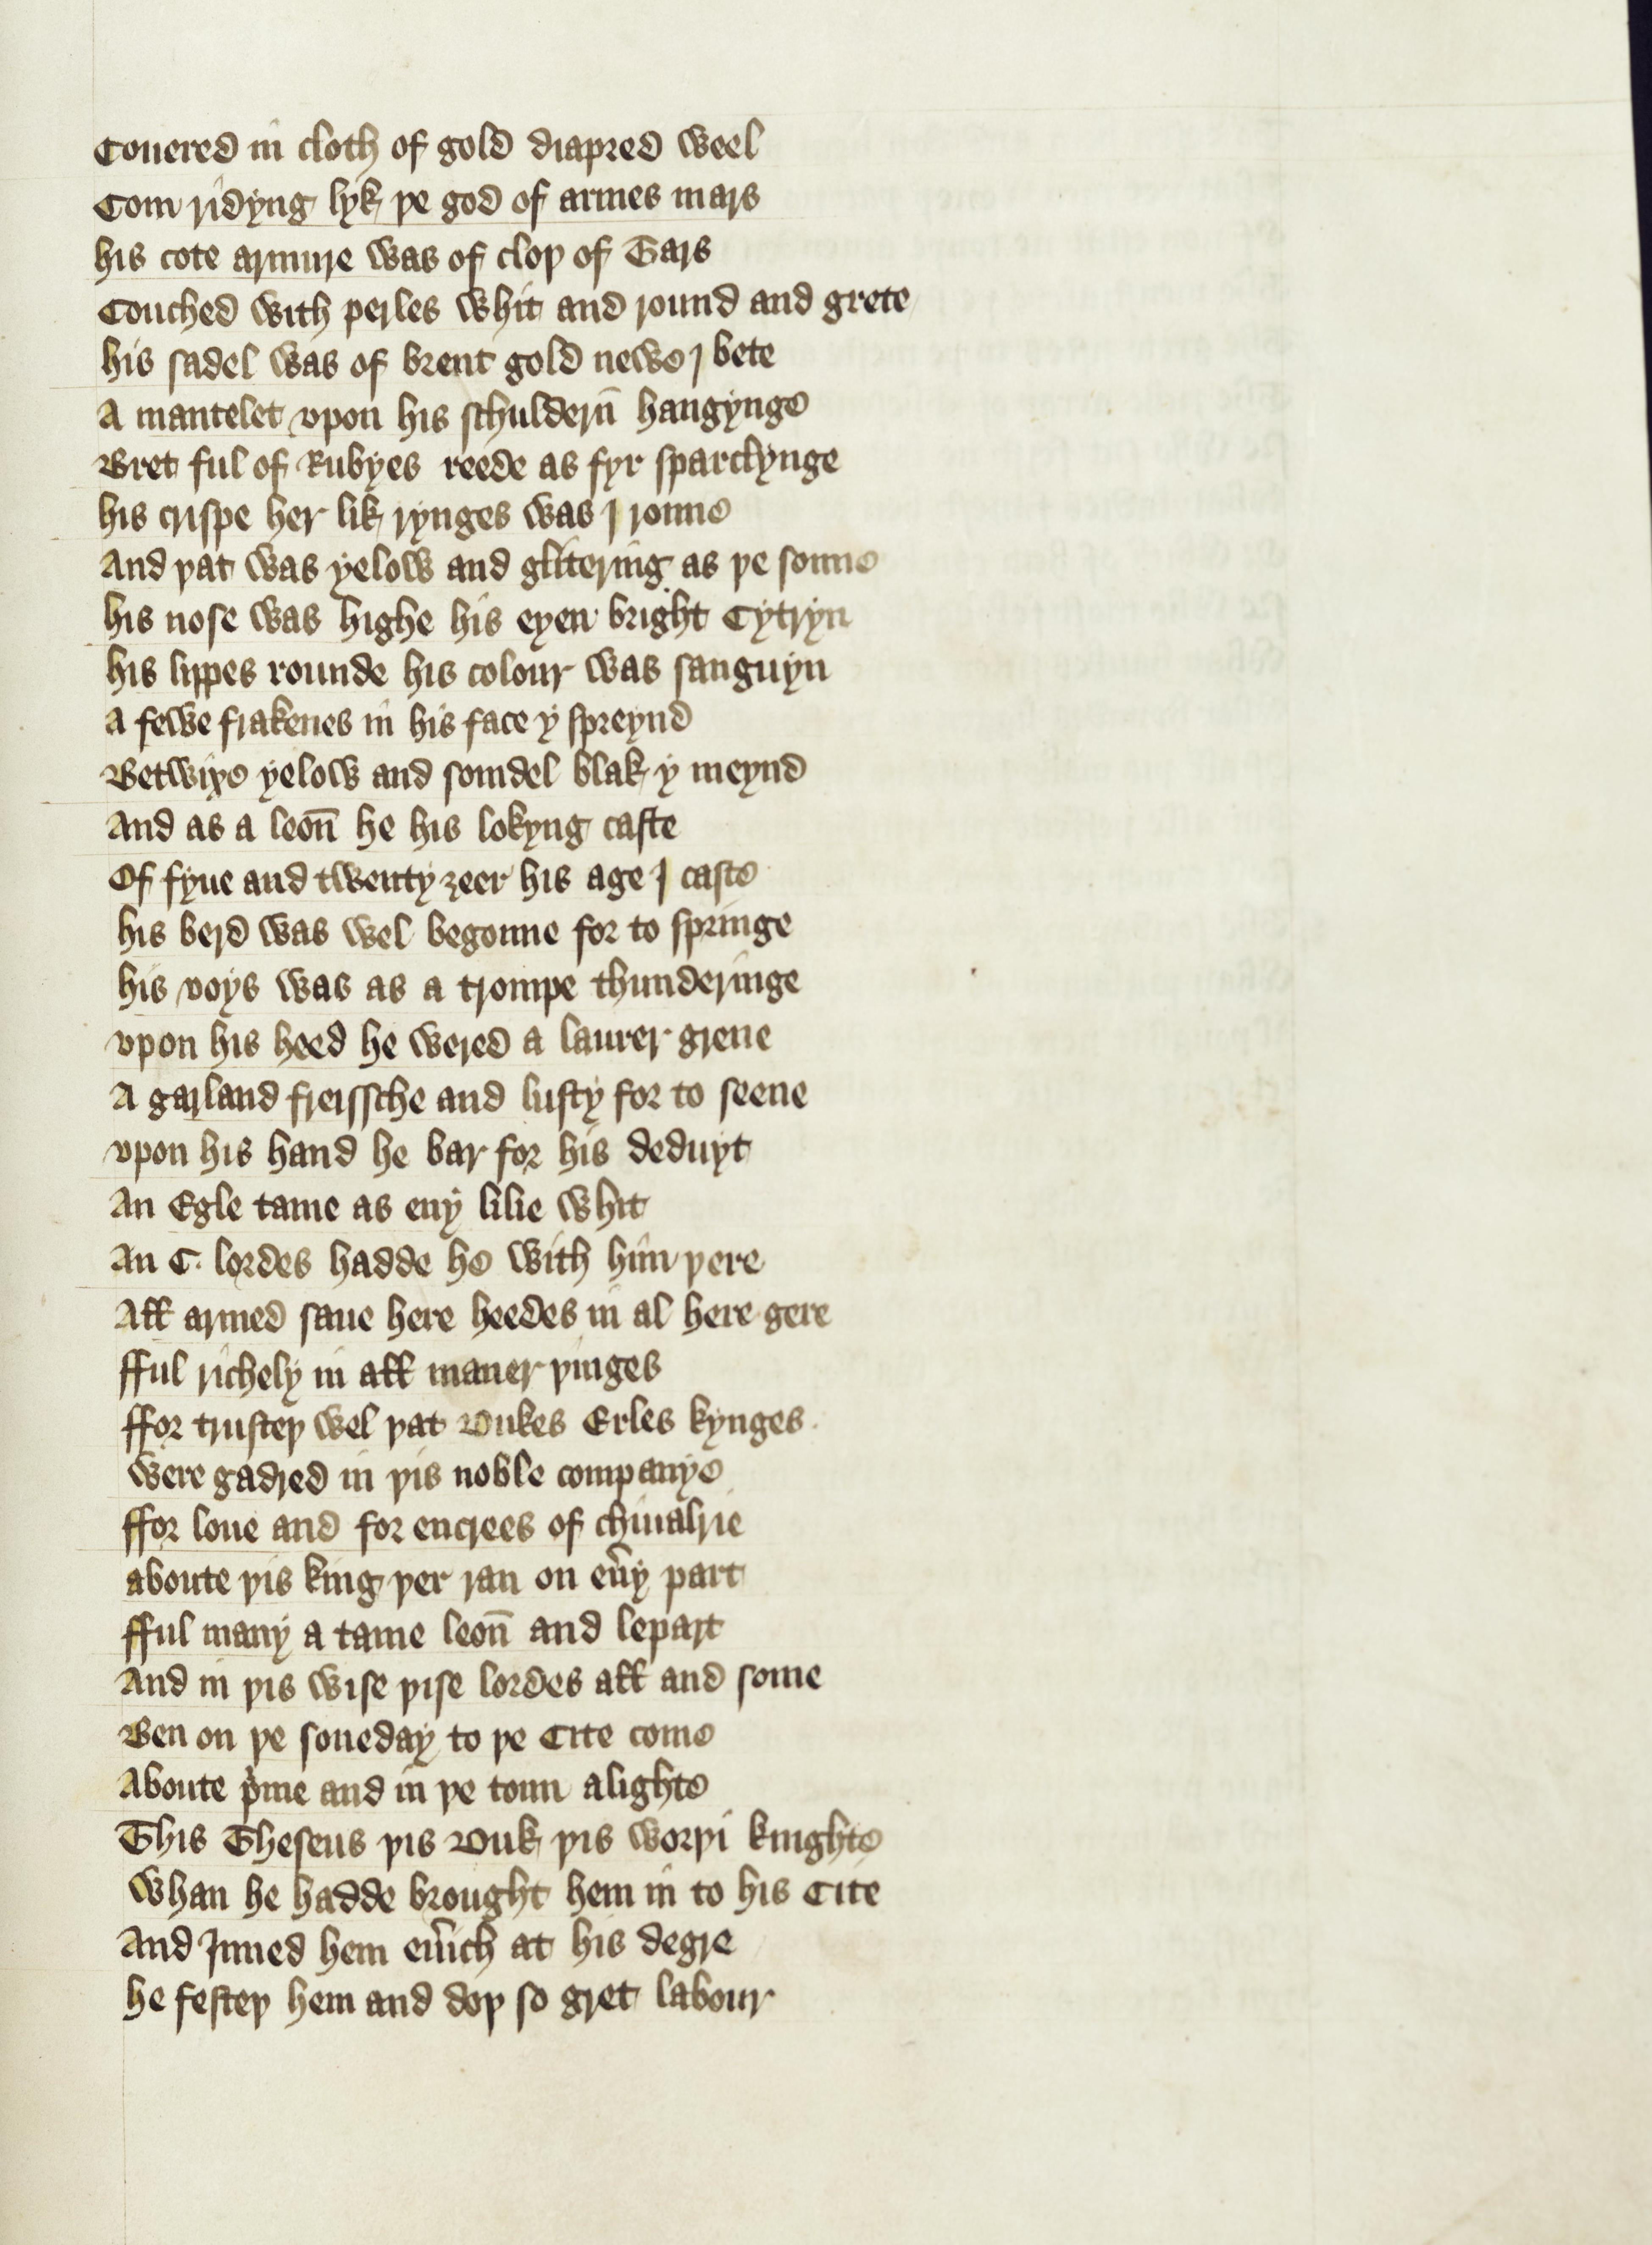 Couered in cloth of gold diapred weel
Com ridyng lyk þe god of armes mars
his cote armure was of cloþ of Tars
Couched with perles whit and round and grete
his sadel was of brent gold newe j bete
A mantelet vpon his schuldern̄ hangynge
Bret ful of Rubyes reede as fyr sparclynge
his crispe her lik rynges was j ronne
And þat was yelow and glitering as þe sonne
his nose was highe his eyen bright Cytryn
his lippes rounde his colour was sanguyn
A fewe frakenes in his face y spreynd
Betwixe yelow and somdel blak y meynd
And as a leon̄ he his lokyng caste
Of fyue and twenty ȝeer his age j caste
his berd was wel begonne for to springe
his voys was as a trompe thunderinge
vpon his heed he wered a laurer grene
A garland freissche and lusty for to seene
vpon his hand he bar for his deduyt
An Egle tame as eny lilie whit
An C. lordes hadde he with him þere
All armed saue here heedes in al here gere
fful richely in all maner þinges
ffor trusteþ wel þat Dukes Erles kynges
were gadred in þis noble companye
ffor loue and for encrees of chiualrie
aboute þis king þer ran on eu͛y part
fful many a tame leon̄ and lepart
And in þis wise þise lordes all and some
Ben on þe soneday to þe Cite come
Aboute pͥme and in þe toun alighte
This Theseus þis Duk þis worþi knighte
whan he hadde brought hem in to his Cite
And Jnned hem eu͛ich at his degre
he festeþ hem and doþ so gret labour